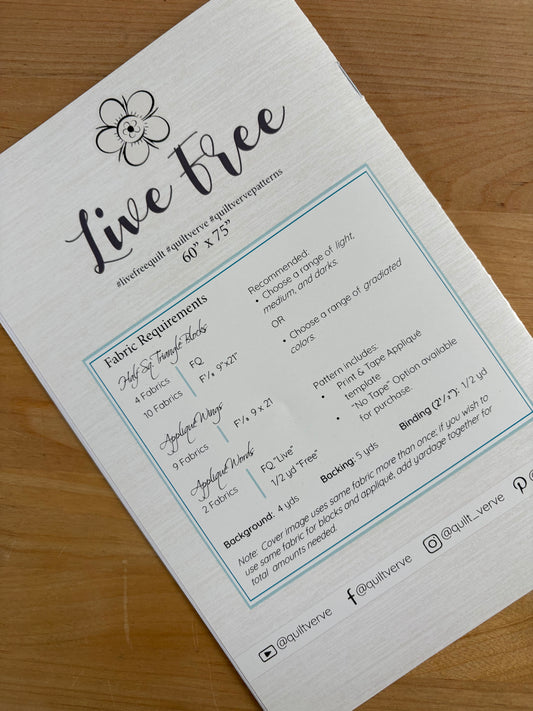 Live Free
#livefreequilt #quiltverve #quiltvervepatterns
60” x 75”
Fabric Requirements
Half Sq Triangle Blocks
4 Fabrics FQ
10 Fabrics F⅛ 9"x21"
Applique Wings
9 Fabrics F⅛ 9 x 21
Applique Words
2 Fabrics FQ "Live"
1/2 yd "Free"
Recommended:
• Choose a range of light,
medium, and darks.
OR
• Choose a range of gradiated
colors.
Pattern includes:
• Print & Tape Appliqué
template
• "No Tape" Option available
for purchase.
Background: 4 yds Backing: 5 yds Binding (2½"): 1/2 yd
Note: Cover image uses same fabric more than once: if you wish to
use same fabric for blocks and appliqué, add yardage together for
total amounts needed.
@quiltverve @quiltverve @quilt_verve